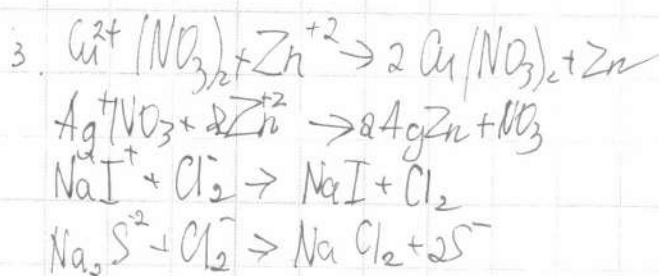 3. Cu²⁺(NO₃)₂+Zn⁺² → 2Cu(NO₃)₂+Zn
Ag⁺NO₃+2Zn⁺² → 2AgZn+NO₃
NaI⁺+Cl₂⁻ → NaI+Cl₂
Na₂S⁻²+Cl₂⁻ → NaCl₂+2S⁻